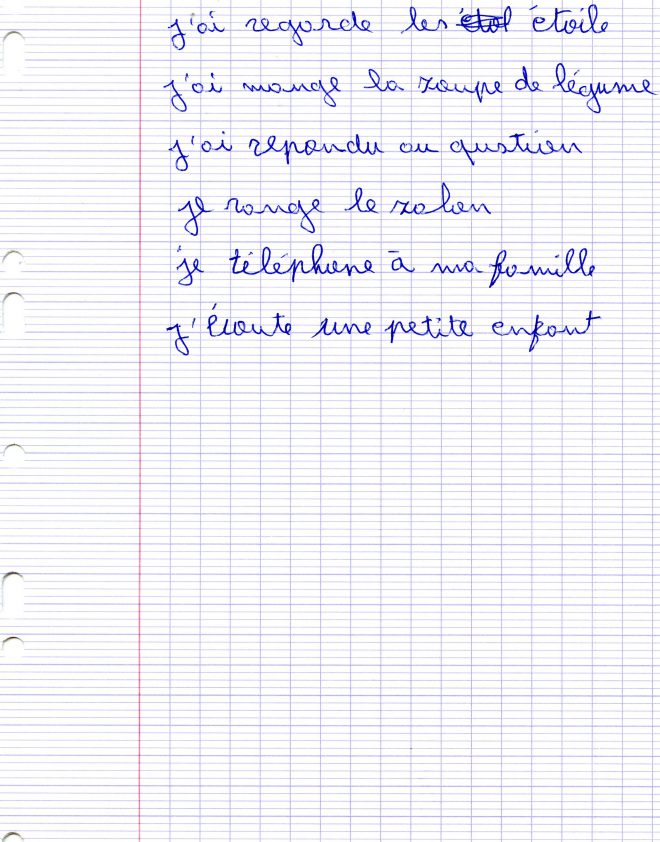 j'ai regarde les étoile
j'ai mange la soupe de légume
j'ai repondu au qustion
je range le salon
je téléphone à ma famille
j'écoute une petite enfant